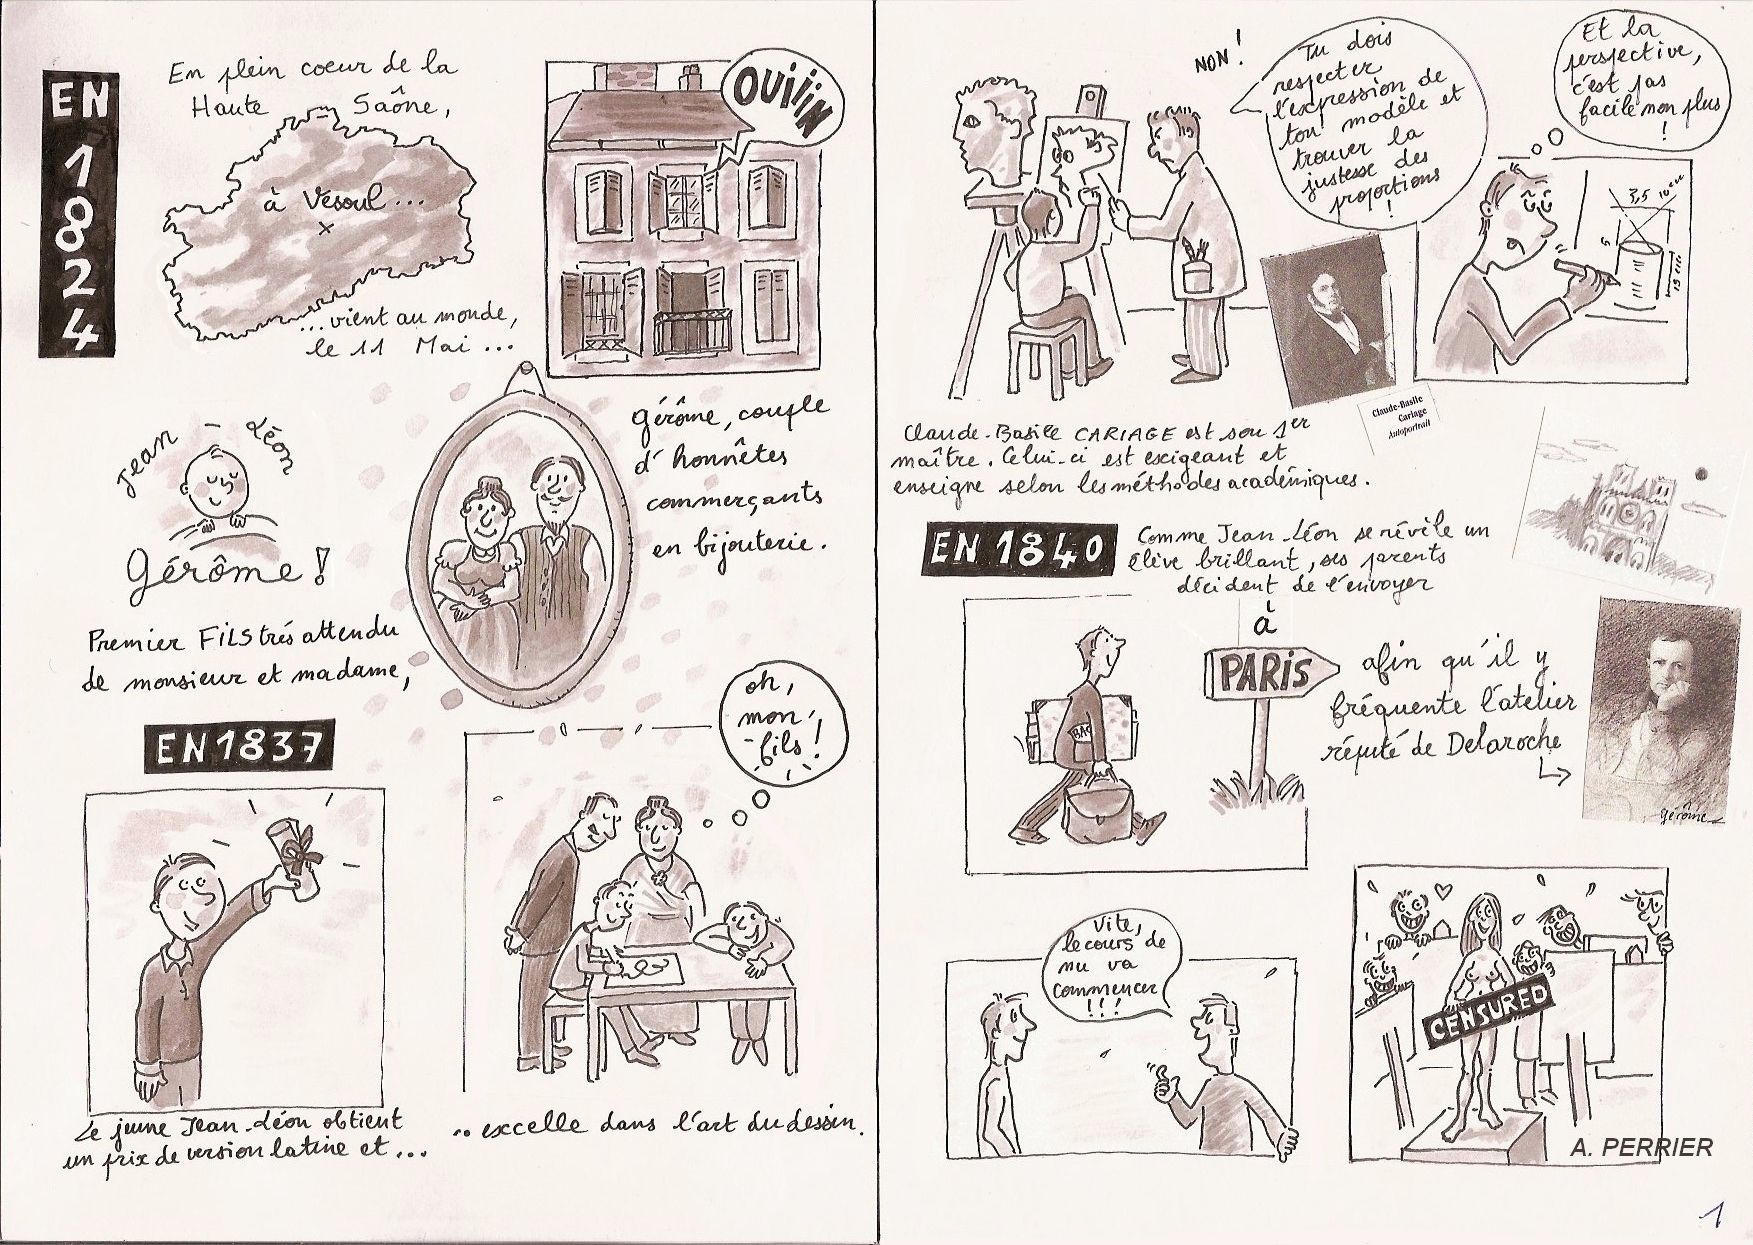 EN
1824
En plein coeur de la
Haute Saône,
à Vesoul...
...vient au monde,
le 11 Mai ...
OUIIIN
Jean-Léon
Gérôme !
Premier FILS trés attendu
de monsieur et madame,
Gérôme, couple
d'honnêtes
commerçants
en bijouterie.
EN 1837
Le jeune Jean-Léon obtient
un prix de version latine et ...
oh,
mon
fils !
.. excelle dans l'art du dessin.
NON !
Tu dois
respecter
l'expression de
ton modèle et
trouver la
justesse des
proportions
!
Et la
perspective,
c'est pas
facile non plus
!
3,5
Claude-Basile
Cariage
Autoportrait
Claude-Basile CARIAGE est son 1er
maître. Celui-ci est exigeant et
enseigne selon les méthodes académiques.
EN 1840
Comme Jean-Léon se révèle un
élève brillant, ses parents
décident de l'envoyer
à
PARIS
BAC
afin qu'il y
fréquente l'atelier
réputé de Delaroche
gérôme
Vite,
le cours de
nu va
commencer
!!!
CENSURED
A. PERRIER
1